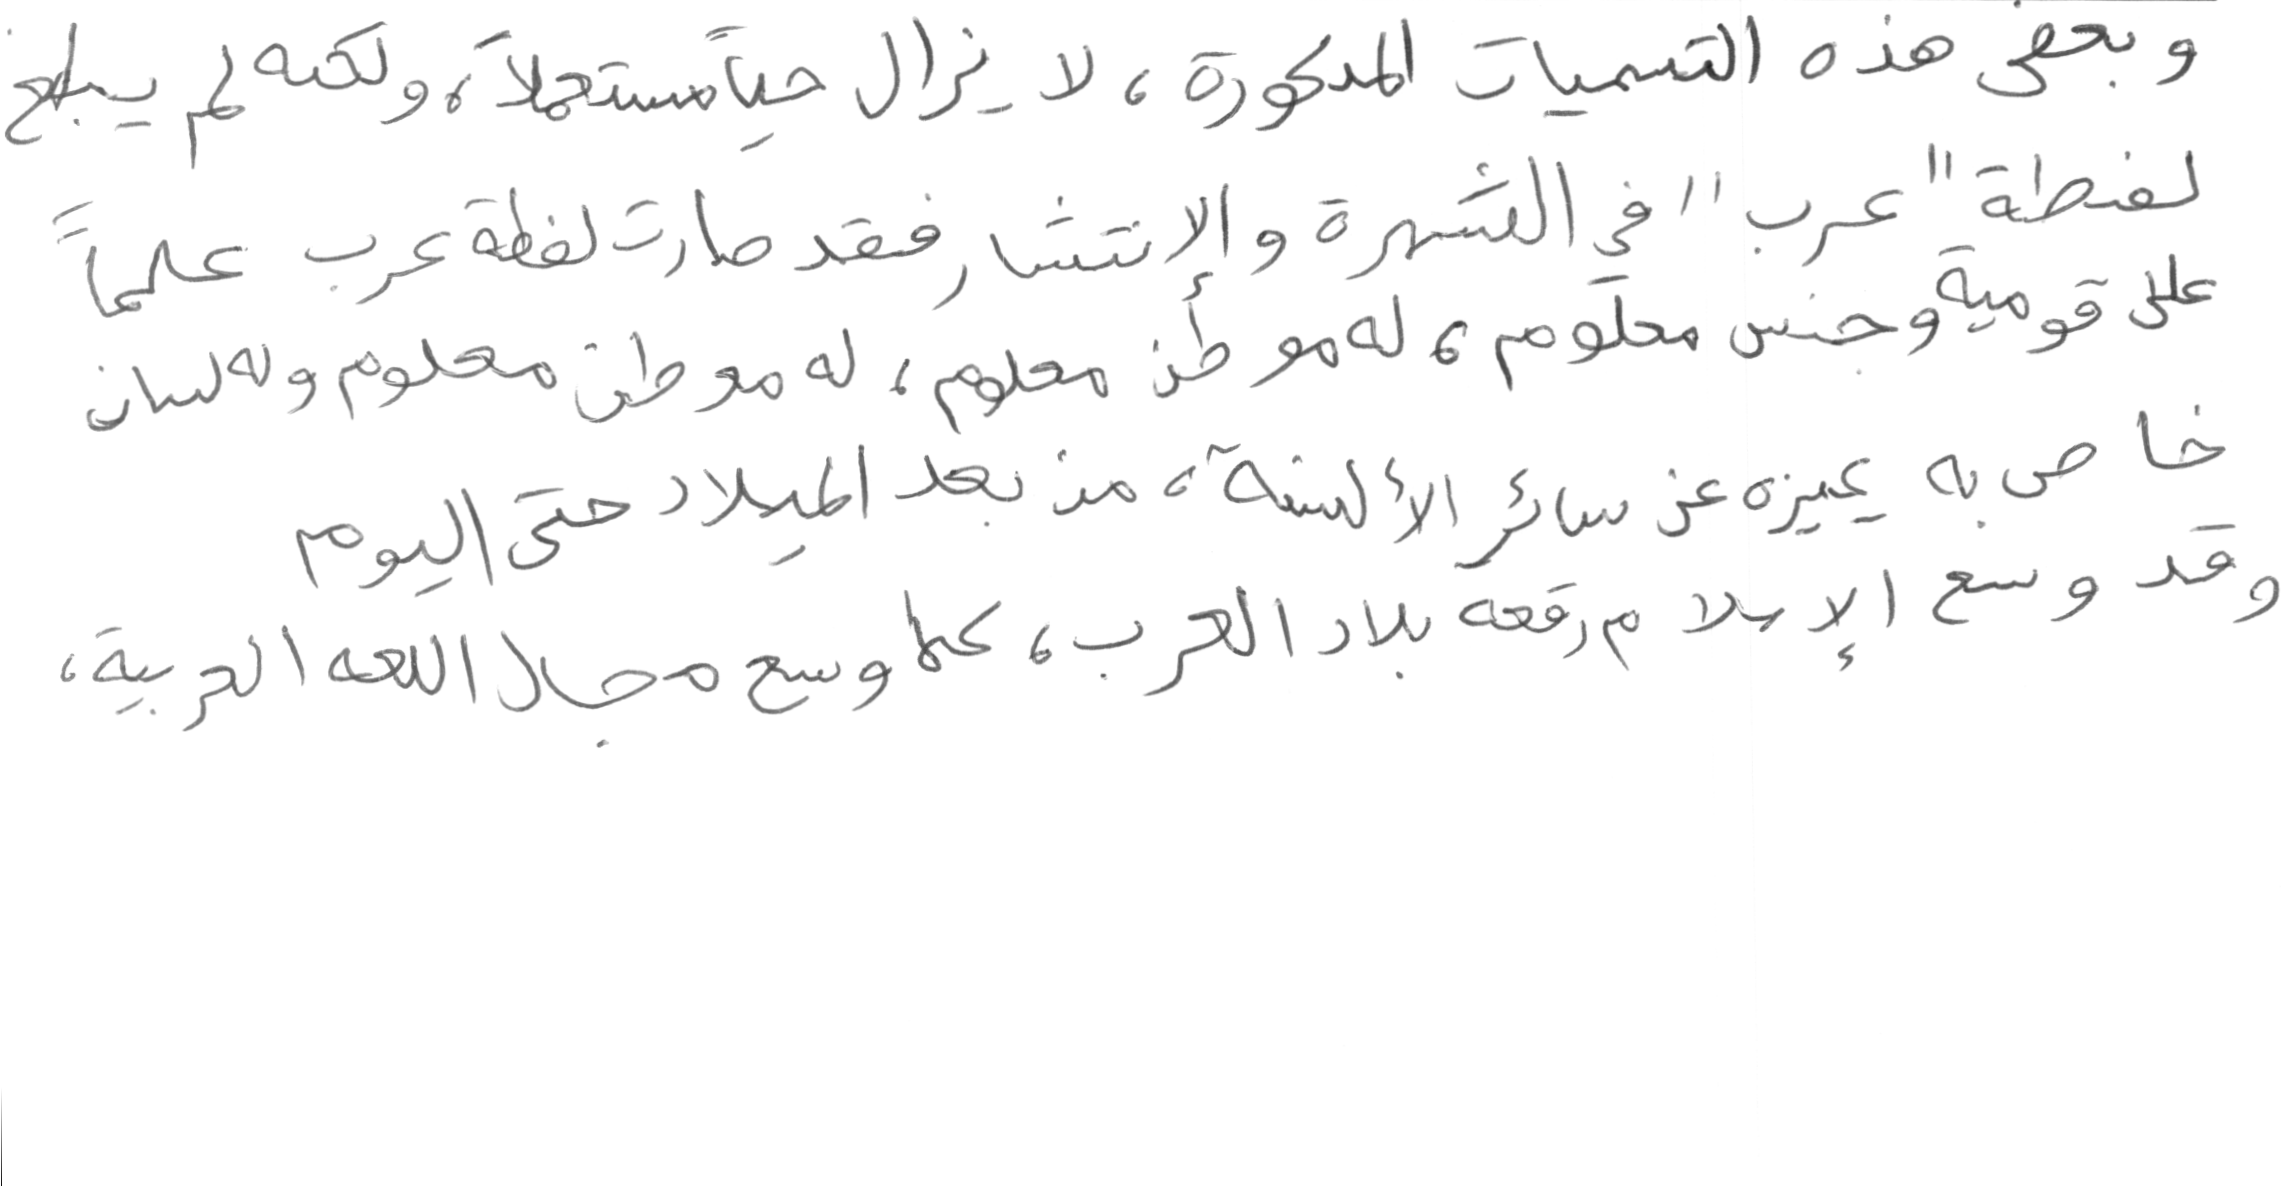 وبعض هذه التسميات المذكورة، لا يزال حياً مستعملاً، ولكنه لم يبلغ
لفظة "عرب" في الشهرة والإنتشار فقد صارت لفظة عرب علماً
على قومية وجنس معلوم، له موطن معلوم، له موطن معلوم وله لسان
خاص به يميزه عن سائر الألسنة، من بعد الميلاد حتى اليوم
وقد وسع الإسلام رقعه بلاد العرب، كما وسع مجال اللغه العربية،